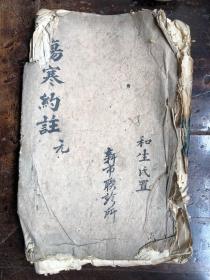 傷寒約註 元
和生氏置
新市联診所